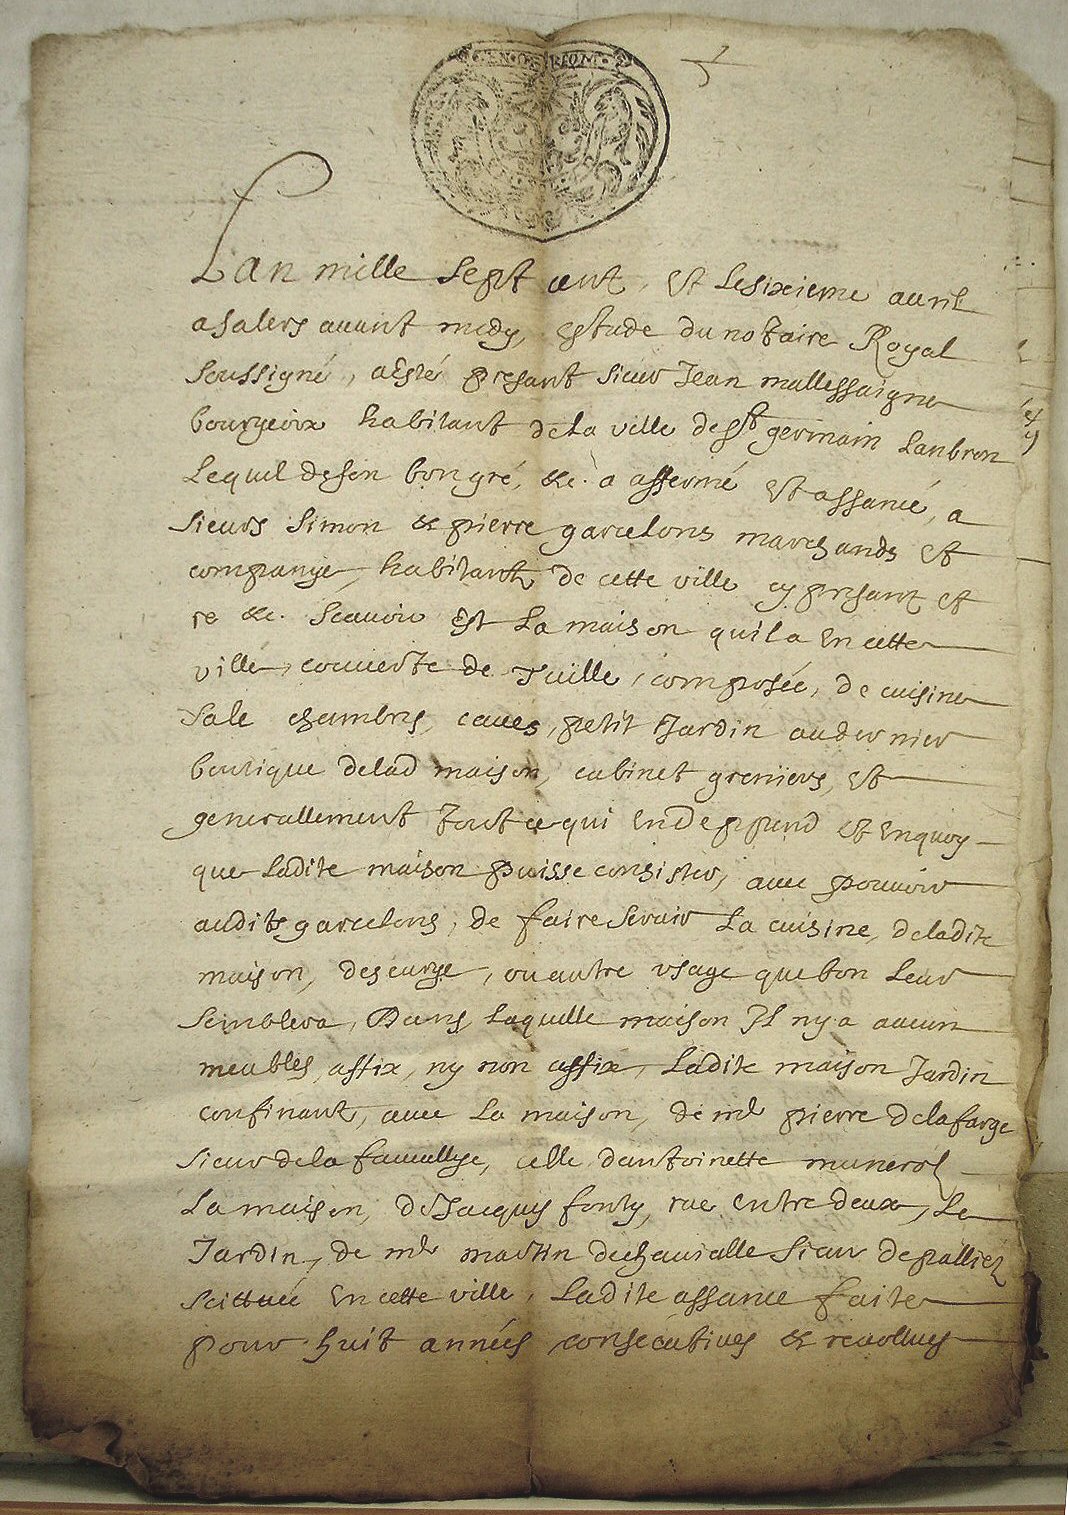 GEN · DE RIOM
Lan mille sept cent, Et Lesixieme auril
a salers auant midy, Estude du notaire Royal
soussigné, aEsté presant sieur Jean mallessaigne
bourgeoix habitant dela ville de St germain Lanbron
Lequel deson bon gré, &c. a affermé Et assancé, a
sieurs simon & pierre garcelons marchands et
compangie, habitantz de cette ville cy presantz et
re &c. scauoir Est La maison quila En cette
ville, couuerte de Tuille, composée, de cuisine
sale chambres, caues, petit Jardin audernier
boutique delad maison, cabinet greniers, Et
generallement tout ce qui En Deppend et Enquoy
que Ladite maison puisse consister, auec pouuoir
audits garcelons, de faire seruir La cuisine, deladite
maison, descurye, ou autre usage que bon Leur
semblera, Dans Laquelle maison Il ny a aucun
meubles affix, ny non affix, Ladite maison Jardin
confinantz, auec La maison, de mr pierre delafarge
sieur dela , celle dantoinette munerol
La maison, de Jacques fonty, rue Entre deux, Le
Jardin, de mr martin dechauialle sieur depalliez
scittuée En cette ville, Ladite assance faite
pour huit années consecutiues & reuollues